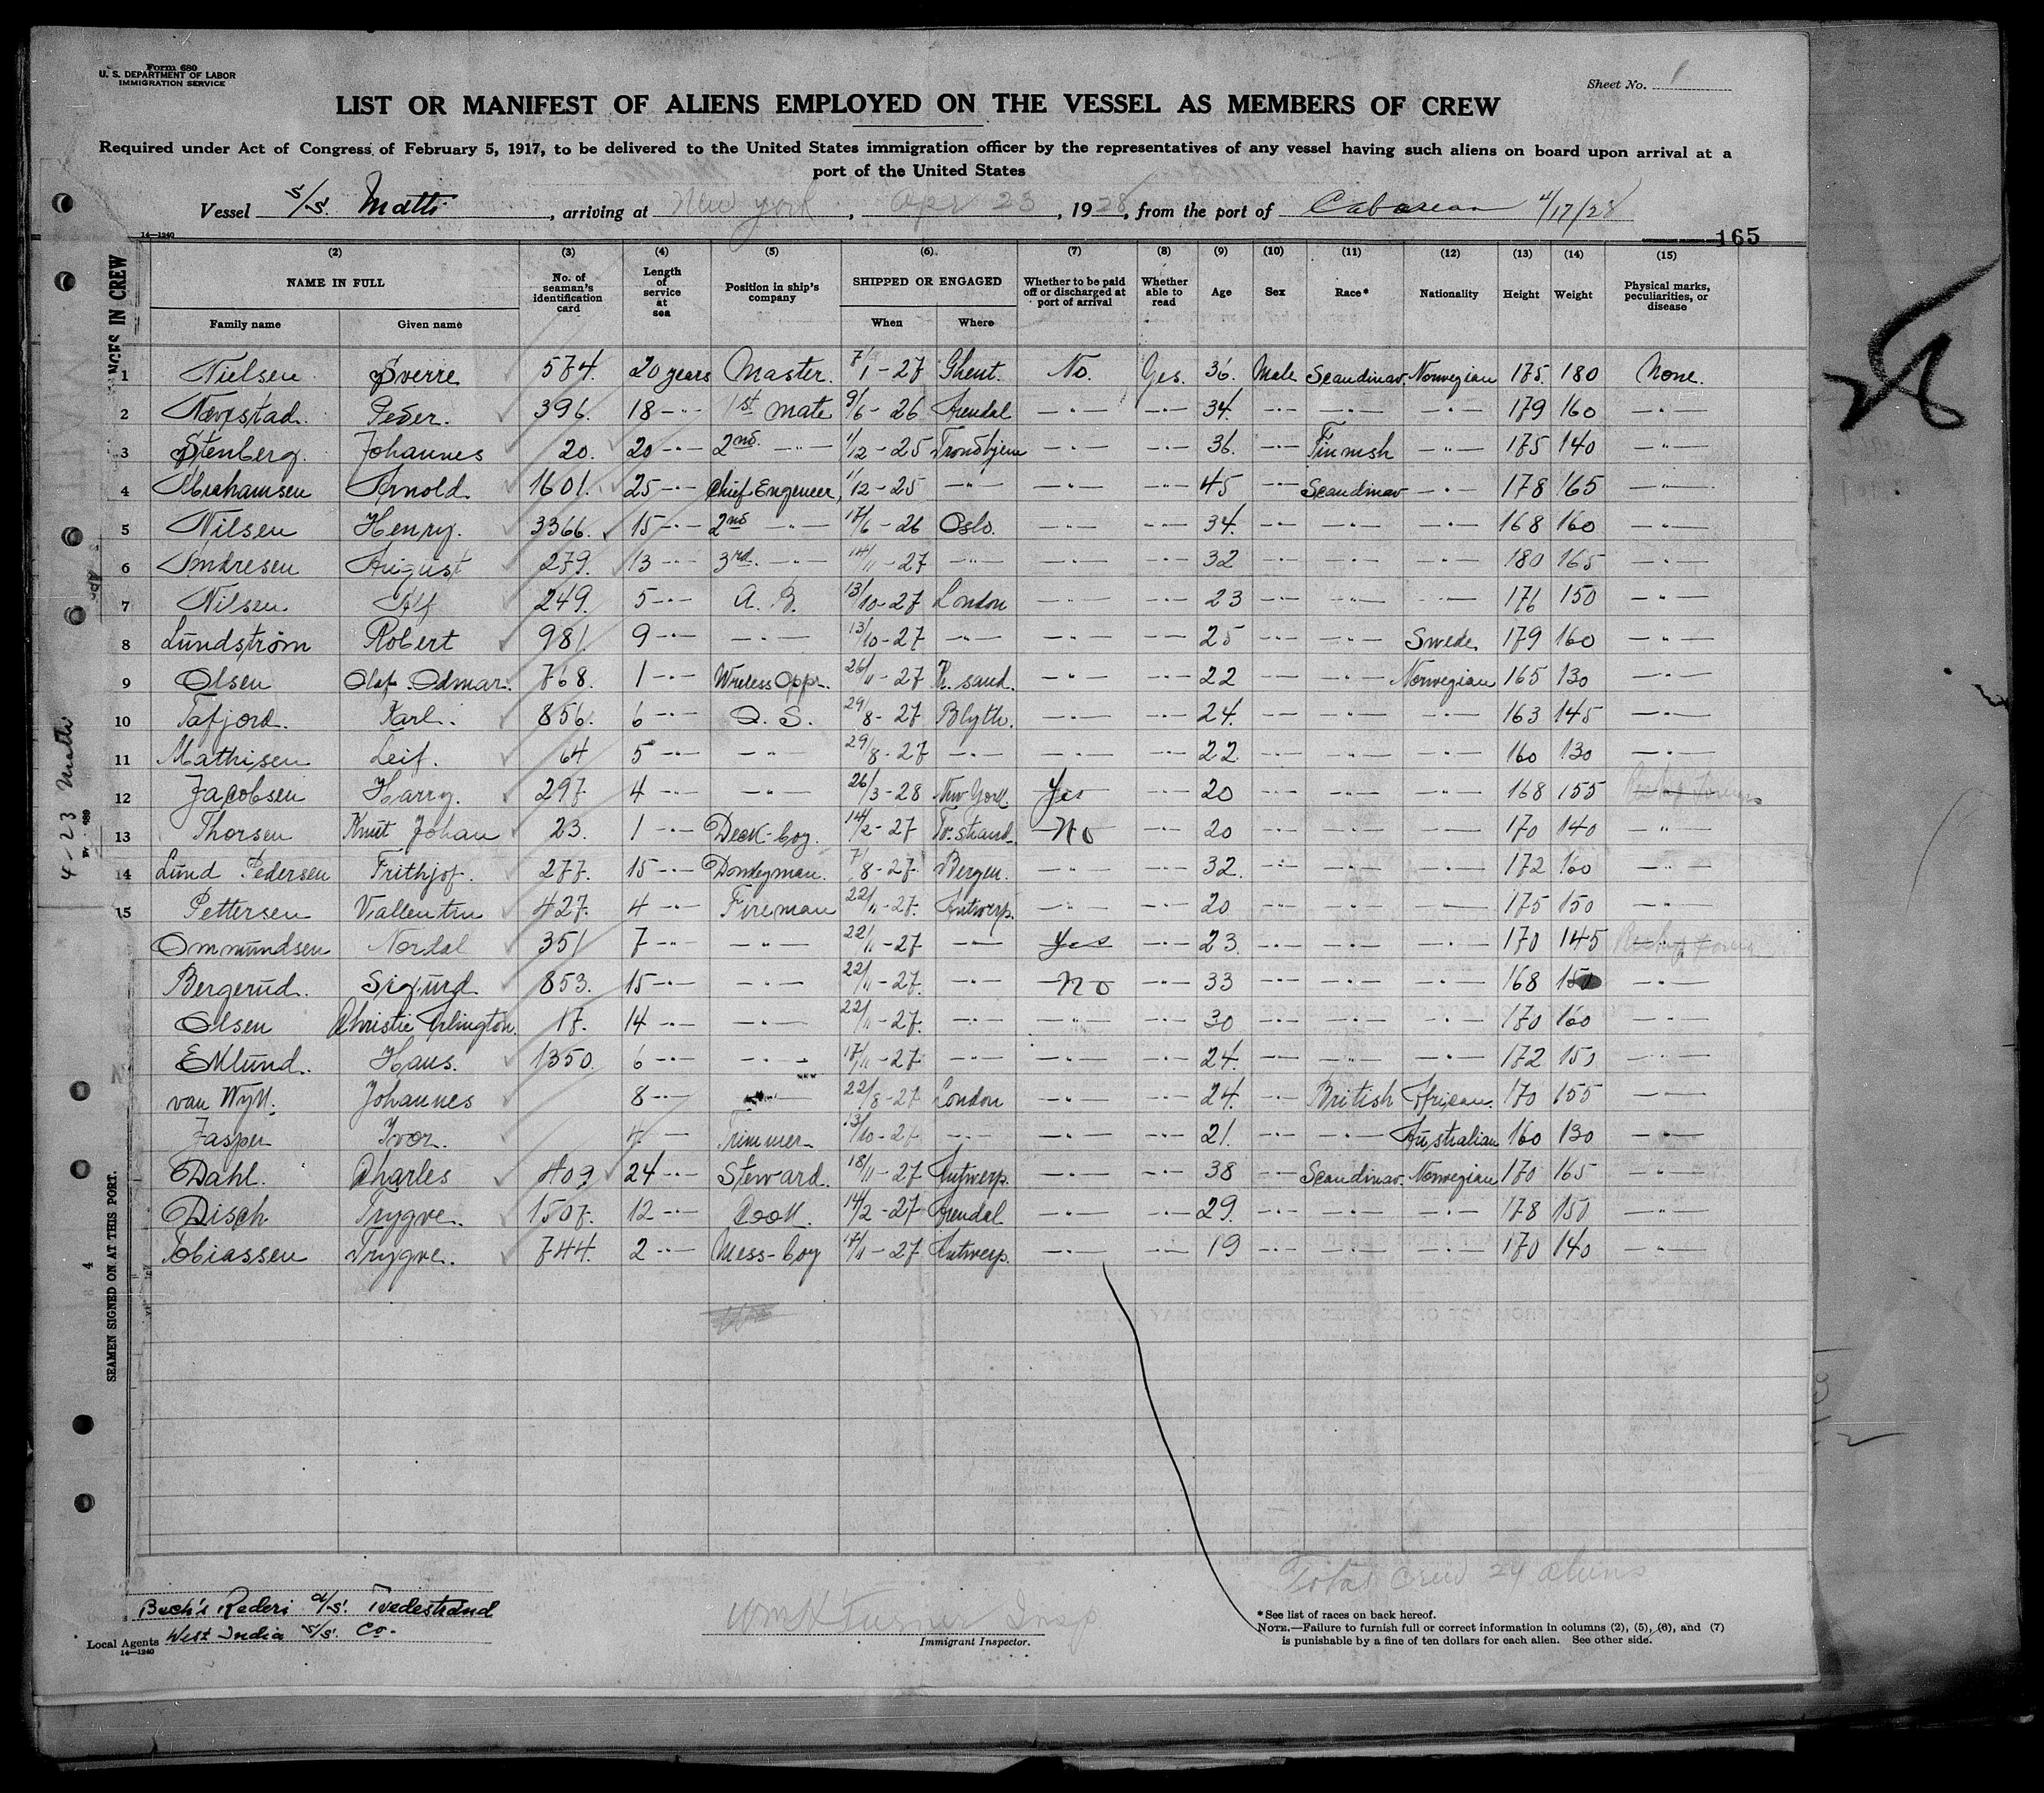 Form 680
U. S. DEPARTMENT OF LABOR
IMMIGRATION SERVICE
Sheet No. 1
LIST OR MANIFEST OF ALIENS EMPLOYED ON THE VESSEL AS MEMBERS OF CREW
Required under Act of Congress of February 5, 1917, to be delivered to the United States immigration officer by the representatives of any vessel having such aliens on board upon arrival at a
port of the United States
Vessel S/S. Matti, arriving at New York, Apr 23, 1928, from the port of 4/17/28
14—1240
165
(2) (3) (4) (5) (6) (7) (8) (9) (10) (11) (12) (13) (14) (15)
NAME IN FULL
Family name Given name
No. of seaman's identification card
Length of service at sea
Position in ship's company
SHIPPED OR ENGAGED
When Where
Whether to be paid off or discharged at port of arrival
Whether able to read
Age Sex Race* Nationality Height Weight
Physical marks, peculiarities, or disease
1 Nielsen Sverre 574. 20 years Master. 7/1-27 Ghent. No. Yes. 36. Male Scandinav. Norwegian 175. 180 None.
2 Nævestad. Peder. 396. 18 -"- 1st mate 9/6-26 Arendal -"- -"- 34. -"- -"- -"- 179 160 -"-
3 Stenberg. Johannes 20. 20 -"- 2nd. -"- 1/12-25 Trondhjem -"- -"- 36. -"- Finnish -"- 175 140 -"-
4 Abrahamsen Arnold. 1601. 25 -"- Chief Engeneer, 1/12-25 -"- -"- -"- 45 -"- Scandinav -"- 178 165 -"-
5 Nilsen Henry. 3366. 15 -"- 2nd -"- 17/6-26 Oslo. -"- -"- 34. -"- -"- -"- 168 160 -"-
6 Andresen August 279. 13 -"- 3rd. -"- 14/11-27 -"- -"- -"- 32 -"- -"- -"- 180 165 -"-
7 Nilsen Alf 249. 5 -"- A. B. 13/10-27 London -"- -"- 23 -"- -"- -"- 176 150 -"-
8 Lundstrøm Robert 981. 9 -"- -"- 13/10-27 -"- -"- -"- 25 -"- -"- Swede. 179 160 -"-
9 Olsen Olaf Odmar. 768. 1 -"- Wireless Oppr. 26/11-27 Kr. sand. -"- -"- 22 -"- -"- Norwegian 165 130 -"-
10 Tafjord. Karl. 856. 6 -"- O. S. 29/8-27 Blyth. -"- -"- 24. -"- -"- -"- 163 145 -"-
11 Mathisen Leif. 64 5 -"- -"- 29/8-27 -"- -"- -"- 22 -"- -"- -"- 160 130 -"-
12 Jacobsen Harry. 297. 4 -"- -"- 26/3-28 New York. Yes -"- 20 -"- -"- -"- 168 155
13 Thorsen Knut Johan 23. 1 -"- Deck-boy. 14/2-27 Tv. strand. No -"- 20 -"- -"- -"- 170 140 -"-
14 Lund Pedersen Frithjof. 277. 15 -"- Donkeyman. 7/8-27 Bergen. -"- -"- 32. -"- -"- -"- 172 160 -"-
15 Pettersen Vallentin 427. 4 -"- Fireman 22/11-27. Antwerp. -"- -"- 20 -"- -"- -"- 175 150 -"-
Ommundsen Nordal 351 7 -"- -"- 22/11-27 -"- Yes -"- 23. -"- -"- -"- 170 145
Bergerud. Sigurd 853. 15 -"- -"- 22/11-27. -"- No -"- 33 -"- -"- -"- 168 150 -"-
Olsen Christie Arlington. 17. 14 -"- -"- 22/11-27. -"- -"- -"- 30 -"- -"- -"- 170 160 -"-
Eklund. Hans. 1350. 6 -"- -"- 17/11-27 -"- -"- -"- 24. -"- -"- -"- 172 150 -"-
van Wyk. Johannes 8 -"- -"- 22/8-27 London -"- -"- 24. -"- British African. 170 155 -"-
Jasper Ivor. 4 -"- Trimmer 13/10-27 -"- -"- -"- 21. -"- -"- Australian 160 130 -"-
Dahl. Charles 409 24 -"- Steward. 18/11-27 Antwerp. -"- -"- 38 -"- Scandinav. Norwegian 170 165 -"-
Disch Trygve. 1507. 12 -"- Cook. 14/2-27 Arendal -"- -"- 29. -"- -"- -"- 178 150 -"-
Tobiassen Trygve. 744. 2 -"- Mess-boy 17/11-27 Antwerp. -"- -"- 19 -"- -"- -"- 170 140 -"-
4-23 Matti
SEAMEN SIGNED ON AT THIS PORT. 4
Total crew 24 aliens
Bech's Rederi a/s. Tvedestrand
Local Agents West India S/S. Co.
14—1240
Wm H Turner Insp
Immigrant Inspector.
* See list of races on back hereof.
NOTE.—Failure to furnish full or correct information in columns (2), (5), (6), and (7)
is punishable by a fine of ten dollars for each alien. See other side.